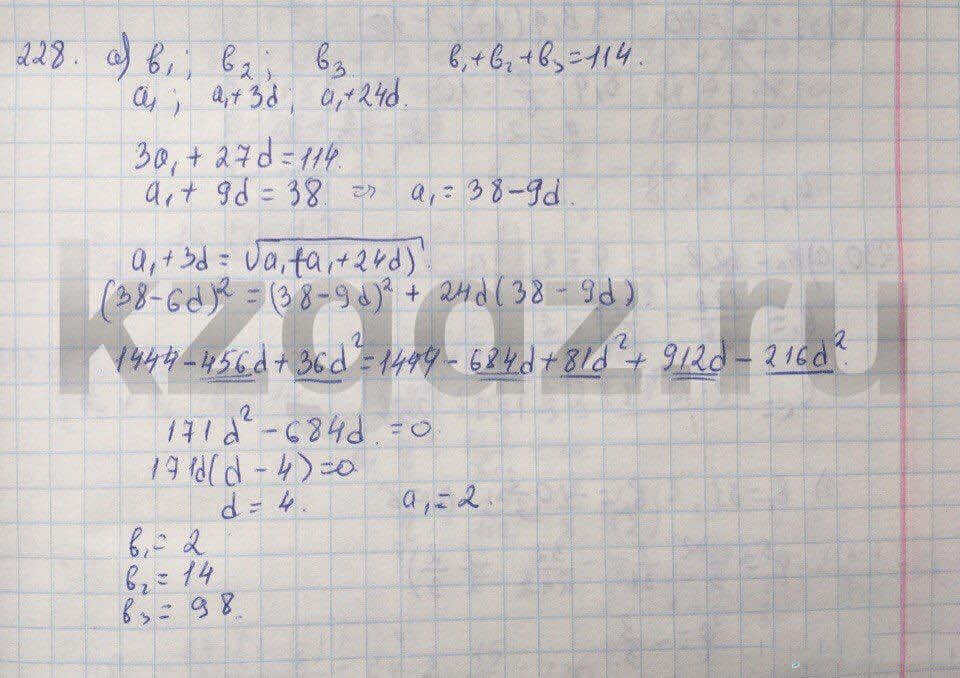 228. а) в₁; в₂; в₃. в₁+в₂+в₃=114.
а₁; а₁+3d; а₁+24d.
3а₁+27d=114.
а₁+9d=38. => а₁=38-9d.
а₁+3d=√а₁(а₁+24d).
(38-6d)²=(38-9d)²+24d(38-9d)
1444-456d+36d²=1444-684d+81d²+912d-216d².
171d²-684d=0.
171d(d-4)=0.
d=4. а₁=2.
в₁=2
в₂=14
в₃=98.
kzgdz.ru